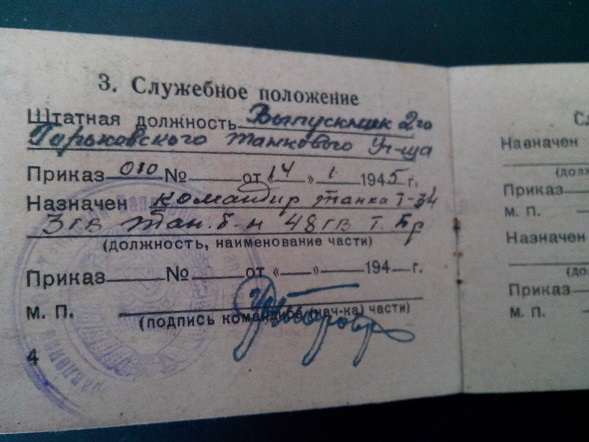 3. Служебное положение
Штатная должность Выпускник 2го
Горьковского танкового Уч-ща
Приказ 010 № от 14 1 1945 г.
Назначен командир танка Т-34
3 гв тан. б-н 48 гв т. бр
(должность, наименование части)
Приказ № от « » 194 г.
М. П.
(подпись командира (нач-ка) части)
4
Назначен
Приказ
М. П.
Назначен
Приказ
М. П.